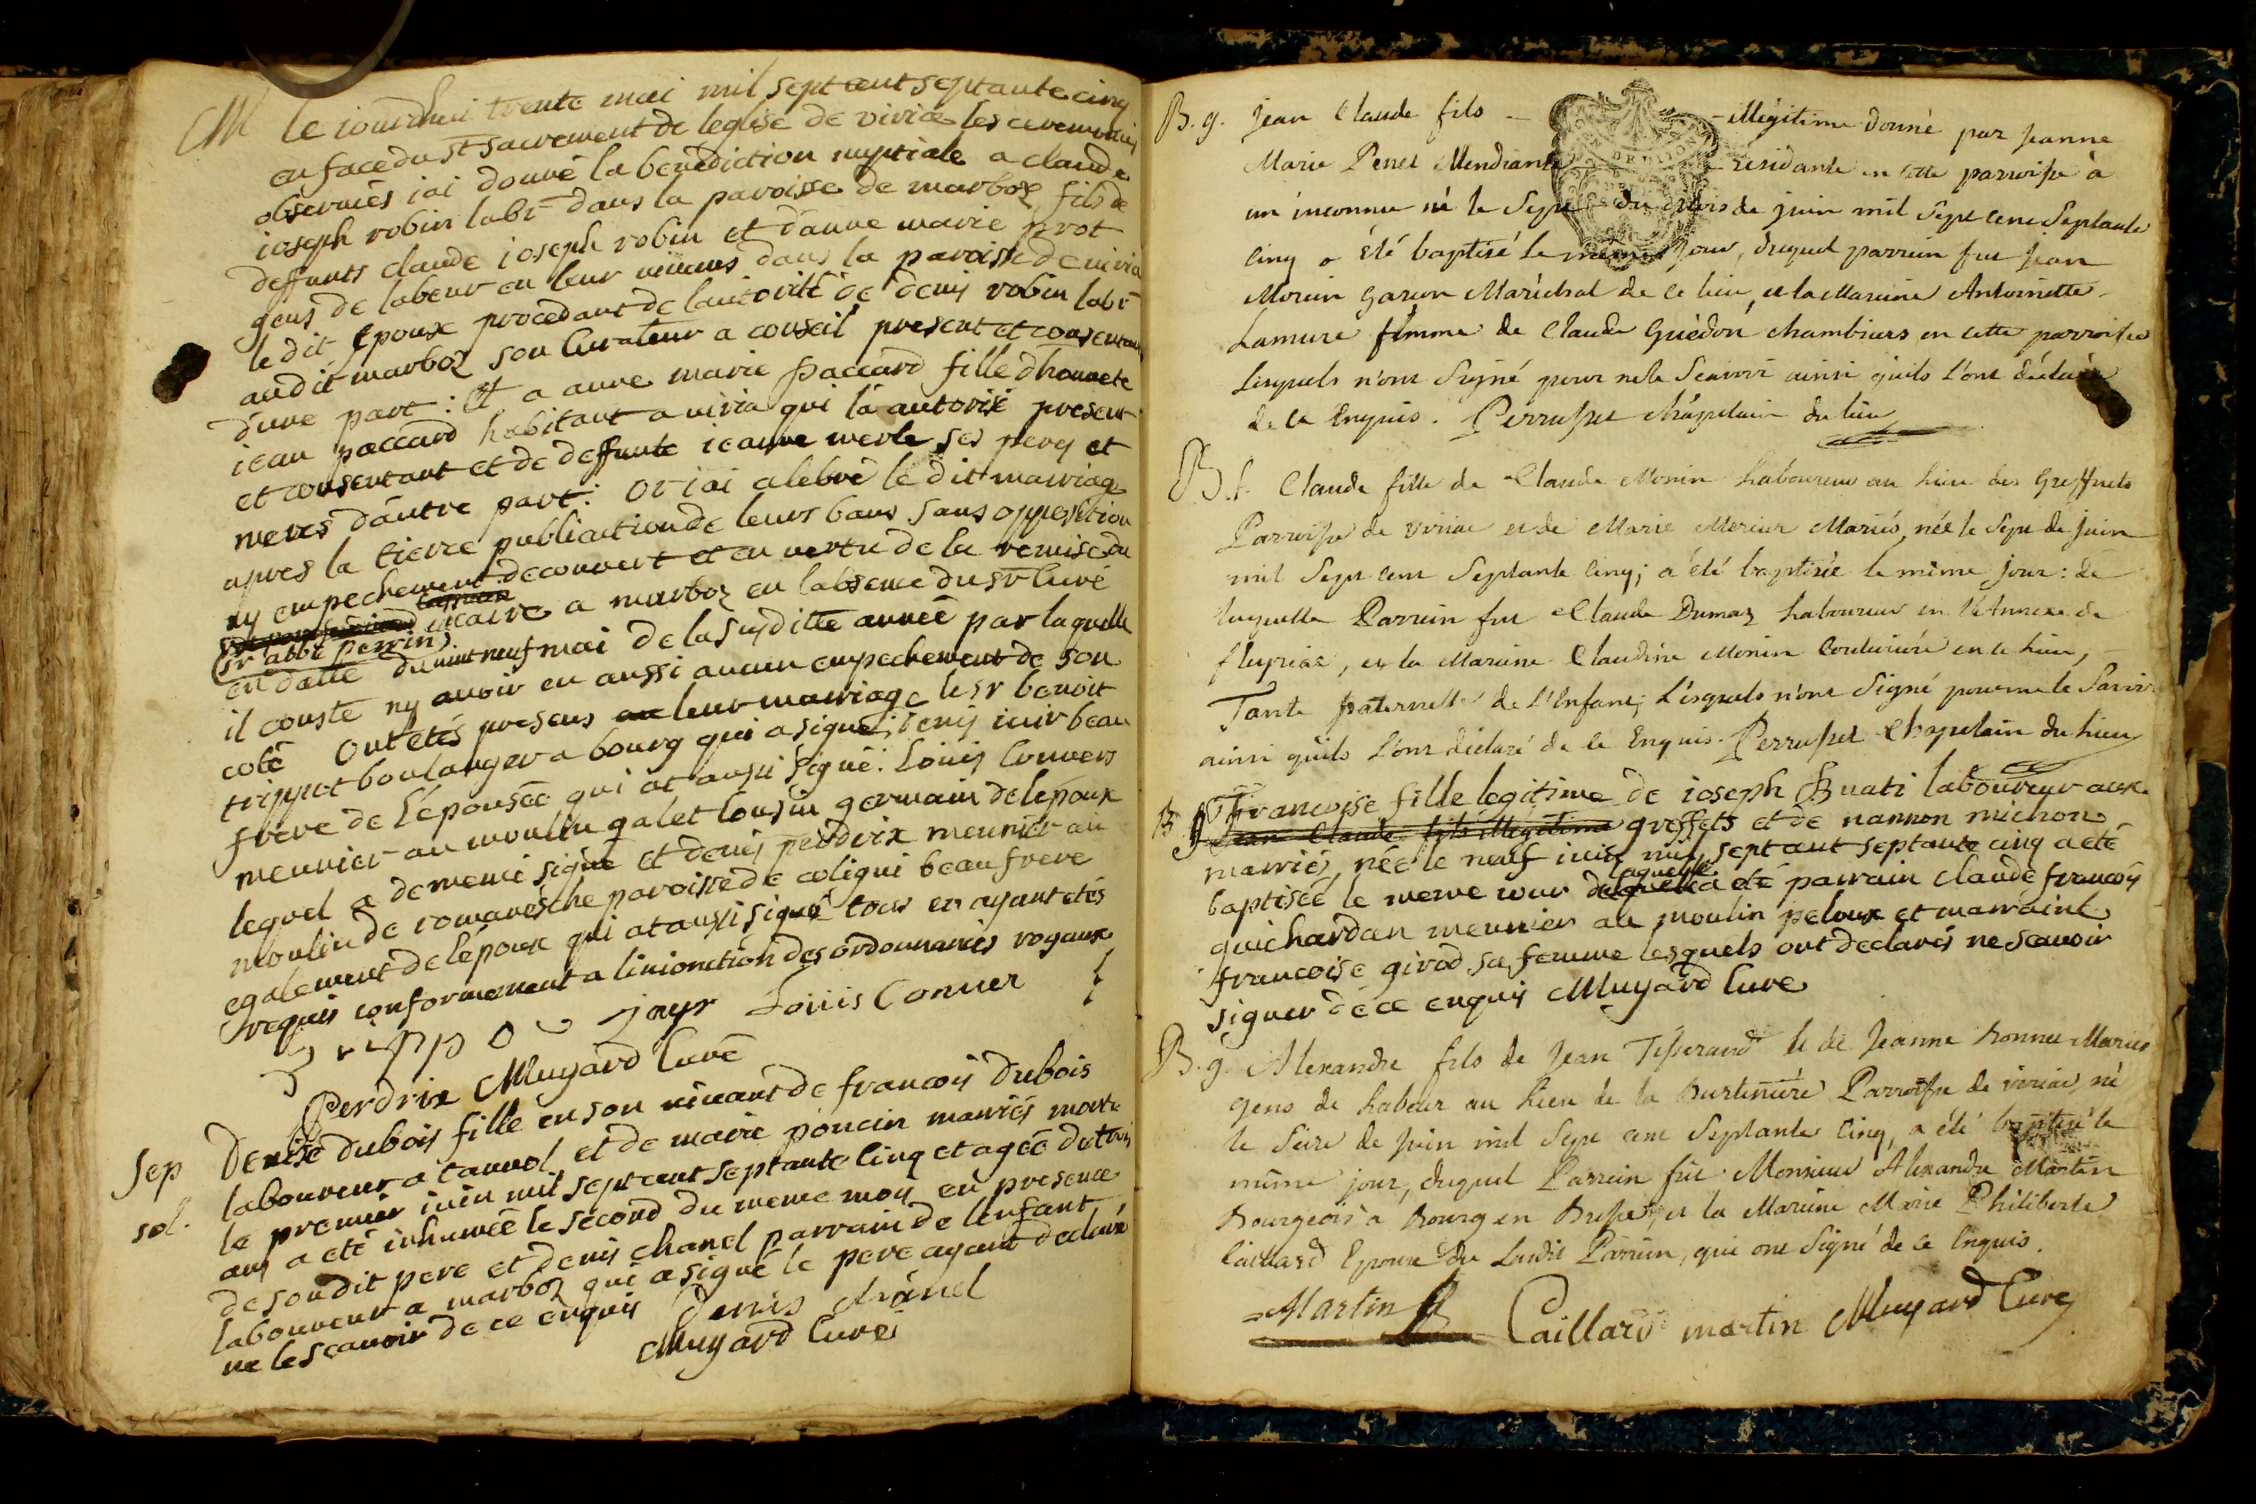 M le iourdhui trente mai mil sept cent septante cinq
en face du st sacrement de leglise de viria les ceremonies
observées iai donné la benediction nuptiale a claude
ioseph robin labr dans la paroisse de marboz fils de
deffunts claude ioseph robin et d'anne marie prot
gens de labeur en leur vivans dans la paroisse de viria
le dit epoux procedant de lautorité de denis robin labr
au dit marboz son curateur a conseil present et consentant
d'une part : et a anne marie paccard fille d honnete
iean paccard habitant a viria qui l'a autorisé present
et consentant et de deffunte ieanne merle ses peres et
meres d'autre part : or iai celebré le dit mariage
apres la tierce publication de leurs bans sans opposition
ny empechement decouvert et en vertu de la remise du
vicaire a marboz en labsence du sr curé
(sr abbé perrin)
en datte du vint neuf mai de la susditte année par laquelle
il conste ny avoir eu aussi aucun empechement de son
coté ont etés presens au leur mariage le sr benoit
trippot boulanger a bourg qui a signé; denis iair beau
frere de l'epousée qui at aussi signé : Louis Convers
meunier au moulin galet Cousin germain de lepoux
lequel a de meme signé et denis perdrix meunier au
moulin de romanesche paroisse de coligni beau frere
egalement de lepoux qui at aussi signé tous en ayant etés
requis conformement a linionction des ordonnances royaux
trippo jayr Loüis Conver
Perdrix Muyard Curé
Sep Denise dubois fille en son vivant de francois dubois
sol. laboureur a et de marie poncin mariés morte
le premier iuin mil sept cent septante Cinq et agée de trois
ans a eté inhumée le second du meme mois en presence
de son dit pere et denis chanel parrain de lenfant
laboureur a marboz qui a signé le pere ayant declaré
ne le scavoir de ce enquis Denis chanel
Muyard Curé
B. g. Jean Claude fils — illégitime donné par Jeanne
Marie Penet Mendiante résidante en cette parroisse à
un inconnu né le Sept du mois de juin mil Sept cent Septante
cinq a été baptisé le même jour, duquel parrein fut Jean
Morein garcon Maréchal de ce lieu, et la Mareine Antoinette
Lamure femme de Claude Guédon chambriers en cette parroisse
Lesquels n'ont Signé pour ne le Scavoir ainsi quils l'ont déclaré
de ce Enquis. Perrusset Chapelain du lieu
B. f. Claude fille de Claude Monin Laboureur au lieu des Greffets
Parroisse de Viriac et de Marie Mercier Mariés, née le Sept de juin
mil Sept cent Septante Cinq; a été baptisée le même jour : de
laquelle Parrein fut Claude Dumaz Laboureur en l'Annexe de
fleyriac, et la Mareine Claudine Monin Couturiére en ce lieu,
Tante paternelle de l'Enfant; Lesquels n'ont Signé pour ne le Savoir
ainsi quils l'ont déclaré de ce Enquis. Perrusset Chapelain du lieu
B f francoise fille legitime de ioseph Buati laboureur aux
Jean Claude fils illegitime greffets et de nannon michon
mariés, née le neuf iuin mil sept cent septante cinq a eté
baptisée le meme iour de laquelle a eté parrain claude francois
guichardan meunier au moulin peloux et marraine
francoise girod sa femme lesquels ont declarés ne scavoir
signer de ce enquis Muyard Curé
B. g. Alexandre fils de Jean Tisserand et de Jeanne Bonnet Mariés
gens de Labeur au Lieu de la Parroisse de viriac, né
le Seize de Juin mil Sept cent Septante Cinq, a été baptisé le
même jour, duquel Parrein fut Monsieur Alexandre Martin
Bourgeois à Bourg en Bresse, et la Mareine Marie Philiberte
Caillard Epouse du Susdit Parrein, qui ont Signé de ce Enquis.
Martin Caillard martin Muyard Curé